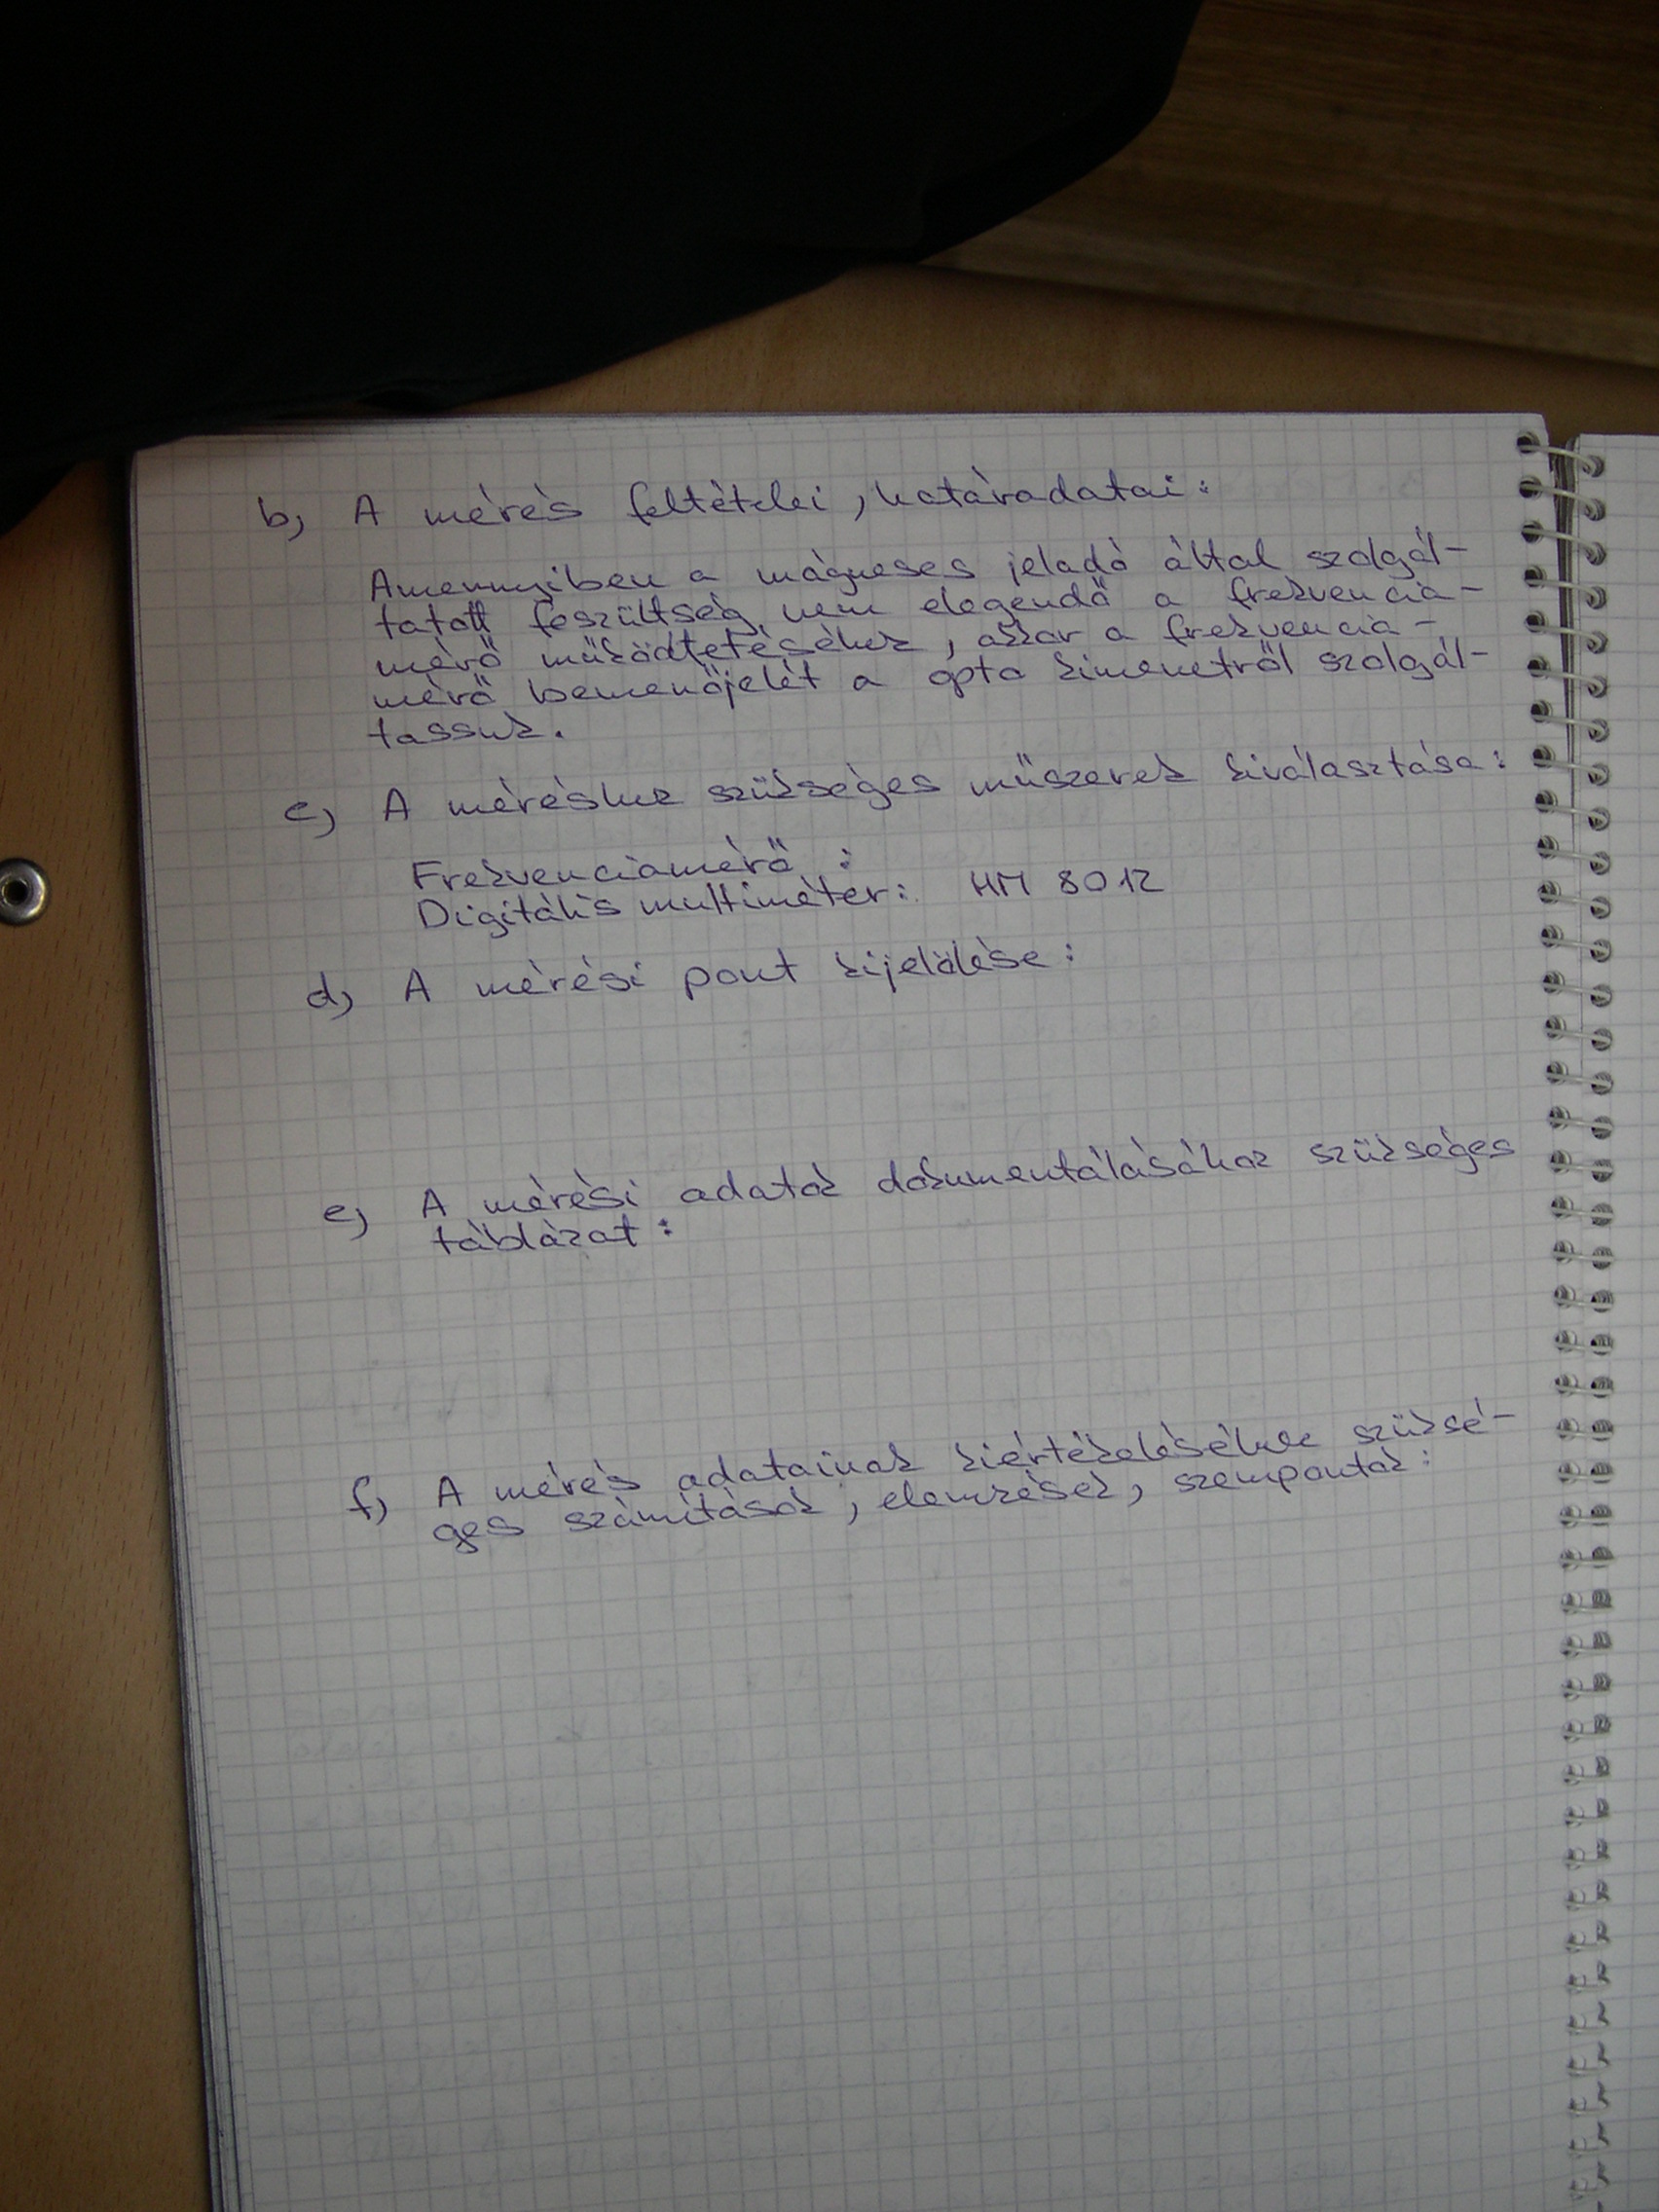 b, A mérés feltételei, határadatai:
Amennyiben a mágneses jeladó által szolgál-
tatott feszültség nem elegendő a frekvencia-
mérő működtetéséhez, akkor a frekvencia-
mérő bemenőjelét a opto kimenetről szolgál-
tassuk.
c, A méréshez szükséges műszerek kiválasztása:
Frekvenciamérő :
Digitális multiméter: HM 8012
d, A mérési pont kijelölése:
e, A mérési adatok dokumentálásához szükséges
táblázat:
f, A mérés adatainak kiértékeléséhez szüksé-
ges számítások, elemzések, szempontok: